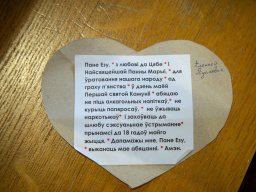 Пане Езу, * з любові да Цябе * і
Найсвяцейшай Панны Марыі, * для
ўратавання нашага народу * ад
граху п'янства * ў дзень маёй
Першай святой Камуніі * абяцаю
не піць алкагольных напіткаў, * не
курыць папяросаў, * не ўжываць
наркотыкаў * і захоўваць да
шлюбу сэксуальнае ўстрыманне *
прынамсі да 18 гадоў майго
жыцця. * Дапамажы мне, Пане Езу,
* выканаць мае абяцанні. * Амэн.